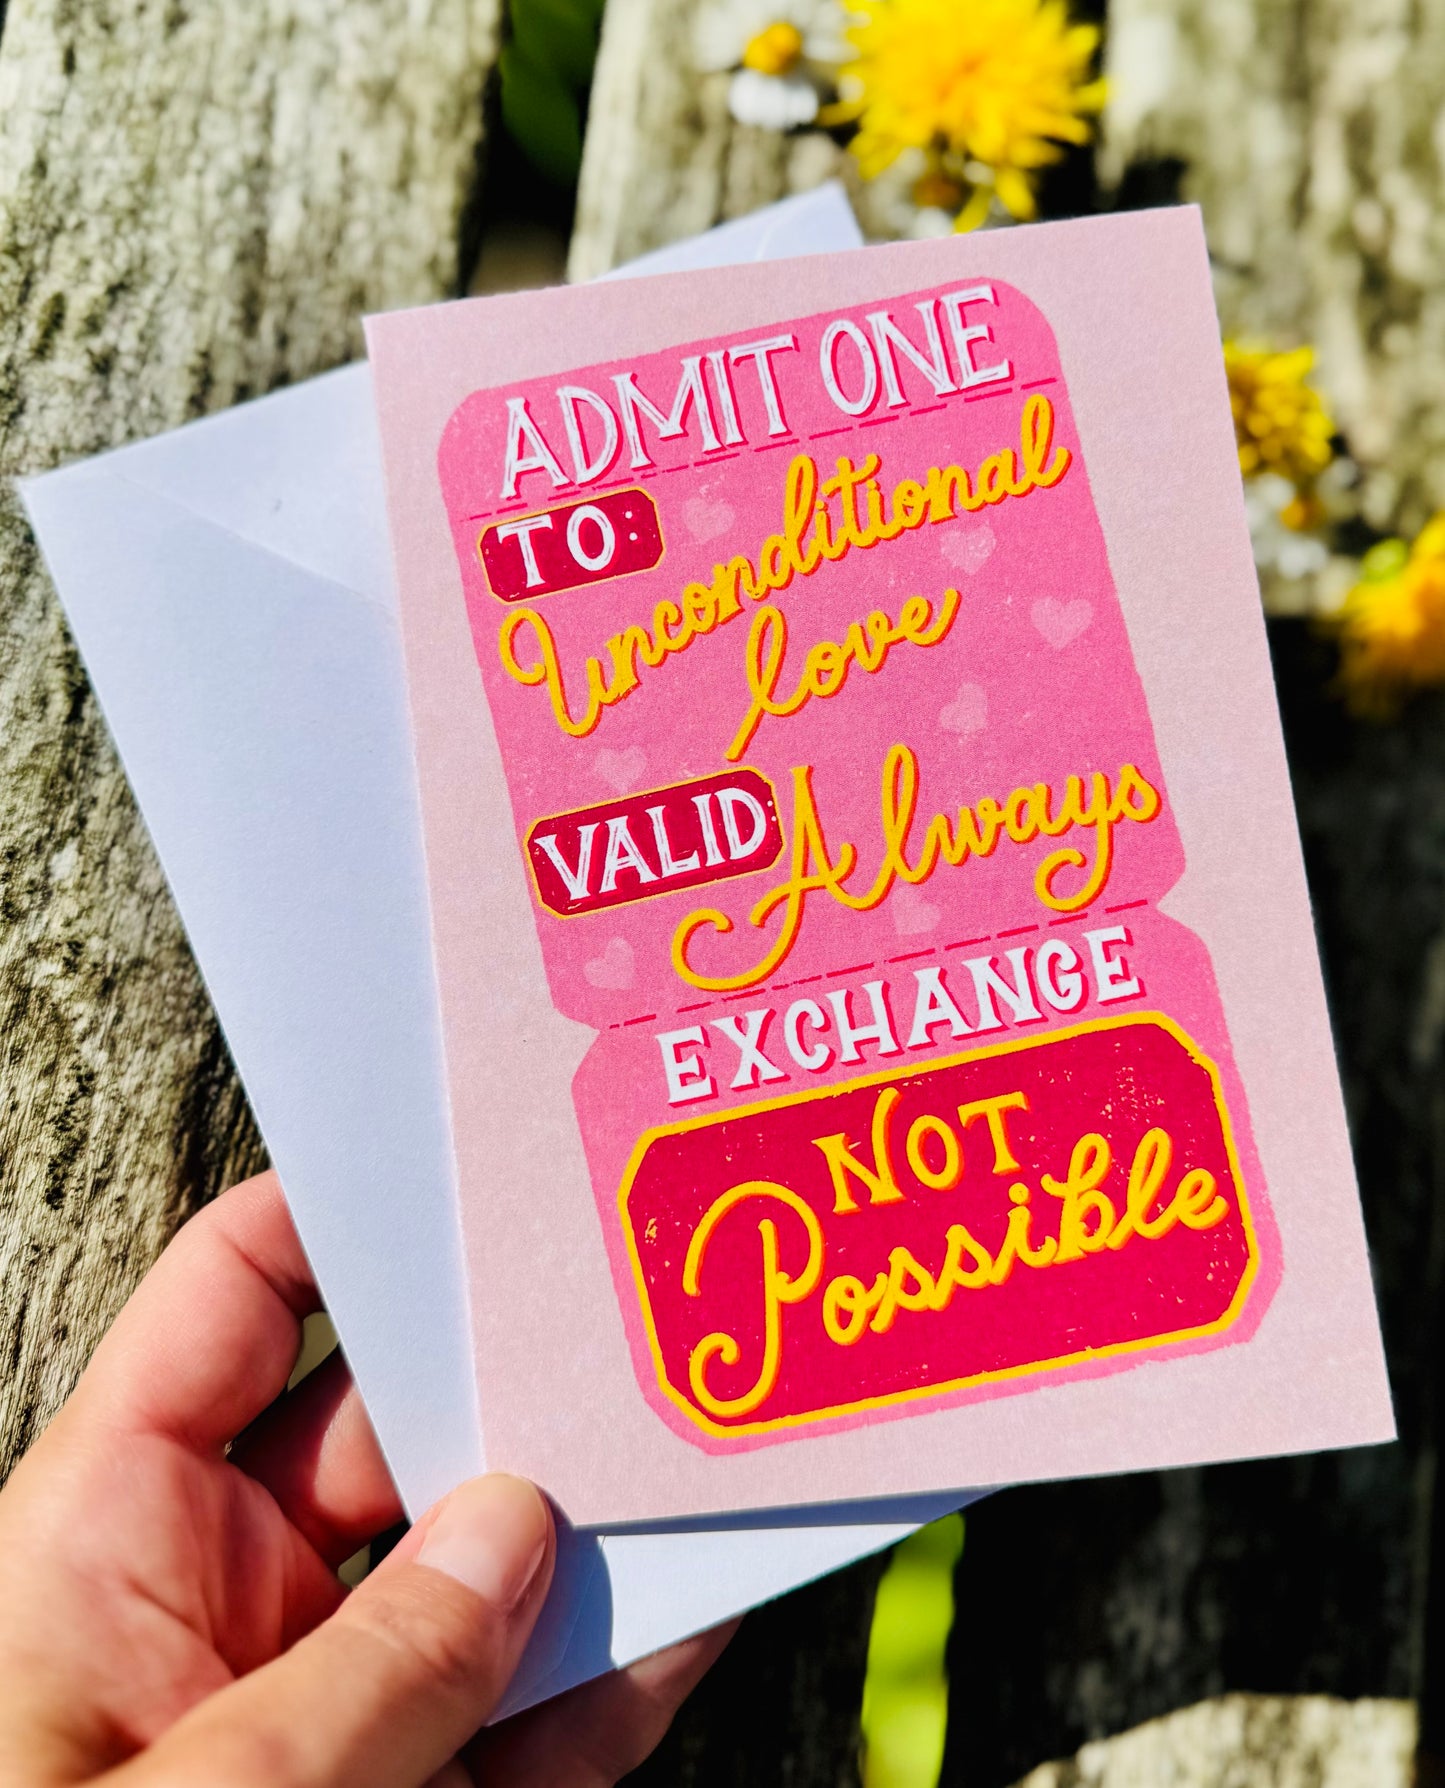 ADMIT ONE
TO:
Unconditional
love
VALID: Always
EXCHANGE
NOT
Possible